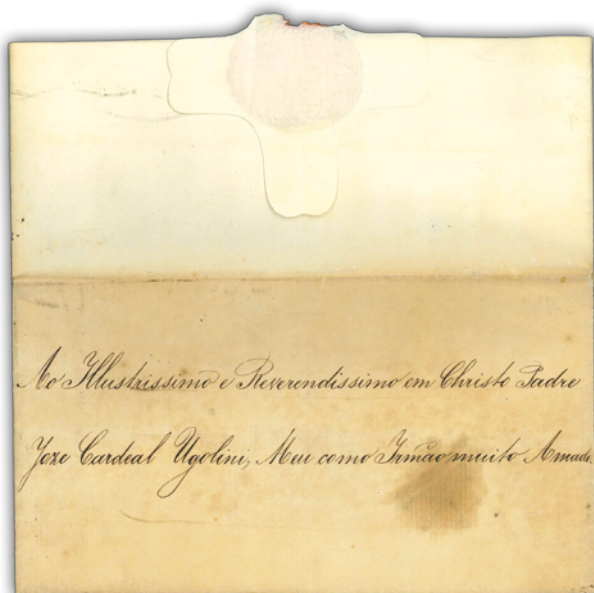 Ao Illustrissimo e Reverendissimo em Christo Padre
Joze Cardeal Ugolini, Meu como Irmão muito Amado.